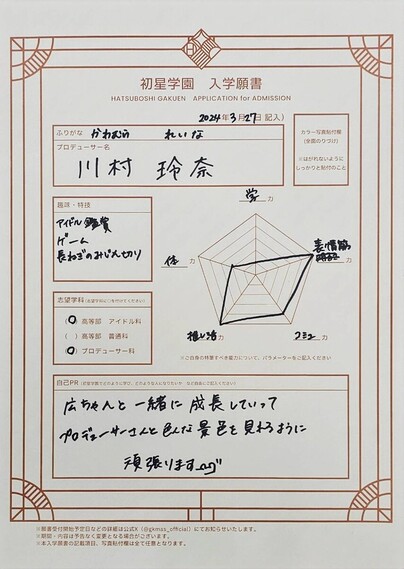 初星学園　入学願書
HATSUBOSHI GAKUEN　APPLICATION for ADMISSION
2024年3月27日 記入)
ふりがな かわむら れいな
プロデューサー名
川村 玲奈
カラー写真貼付欄
(全面のりづけ)
※はがれないように
しっかりと貼付のこと
趣味・特技
アイドル鑑賞
ゲーム
長ねぎのみじん切り
学力
体力
表情筋力
推し活力
コミュ力
※ご自身の特筆すべき能力について、パラメーターをご記入ください
志望学科
(○) 高等部 アイドル科
( ) 高等部 普通科
(○) プロデューサー科
自己PR
広ちゃんと一緒に成長していって
プロデューサーさんと色んな景色を見れるように
頑張ります
※願書受付開始予定日などの詳細は公式X（@gkmas_official）にてお知らせいたします。
※期間・内容は予告なく変更となる場合がございます。
※本入学願書の記載項目、写真貼付欄は全て任意となります。